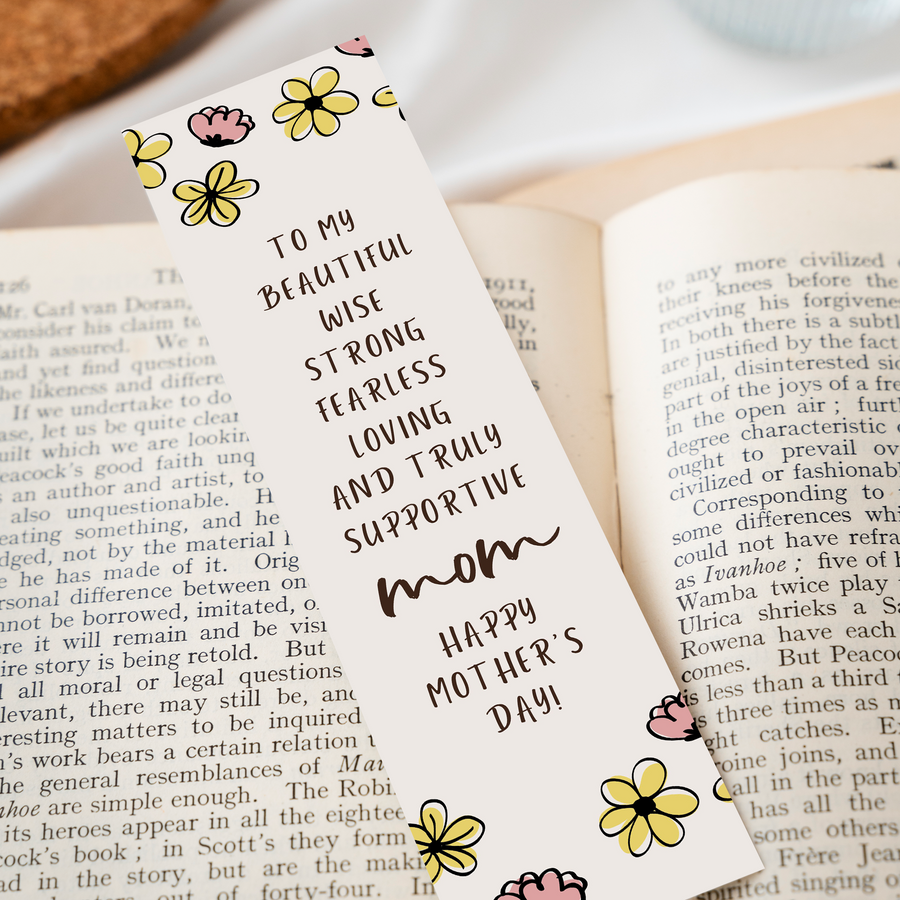 TO MY
BEAUTIFUL
WISE
STRONG
FEARLESS
LOVING
AND TRULY
SUPPORTIVE
mom
HAPPY
MOTHER'S
DAY!
126
Mr. Carl van Doran,
consider his claim to
faith assured. We
and yet find question
the likeness and differe
If we undertake to do
ase, let us be quite clear
uilt which we are lookin
eacock's good faith unq
s an author and artist, to
also unquestionable. H
eating something, and he
dged, not by the material
e he has made of it. Orig
rsonal difference between on
nnot be borrowed, imitated, o
ere it will remain and be visi
ire story is being retold. But
d all moral or legal questions
levant, there may still be, and
eresting matters to be inquired
n's work bears a certain relation t
he general resemblances of Mai
nhoe are simple enough. The Robi
its heroes appear in all the eightee
cock's book ; in Scott's they form
ad in the story, but are the maki
out of forty-four. In
1911,
good
lly,
in
to any more civilized
their knees before the
receiving his forgivene
In both there is a subtl
are justified by the fact
genial, disinterested sid
part of the joys of a fre
in the open air ; furt
degree characteristic
ought to prevail ov
civilized or fashionabl
Corresponding to
some differences whi
could not have refra
as Ivanhoe ; five of h
Wamba twice play
Ulrica shrieks a Sa
Rowena have each
comes. But Peacoc
is less than a third
s three times as m
ght catches. Ex
oine joins, and
all in the part
has all the
some others
Frère Jean
spirited singing o